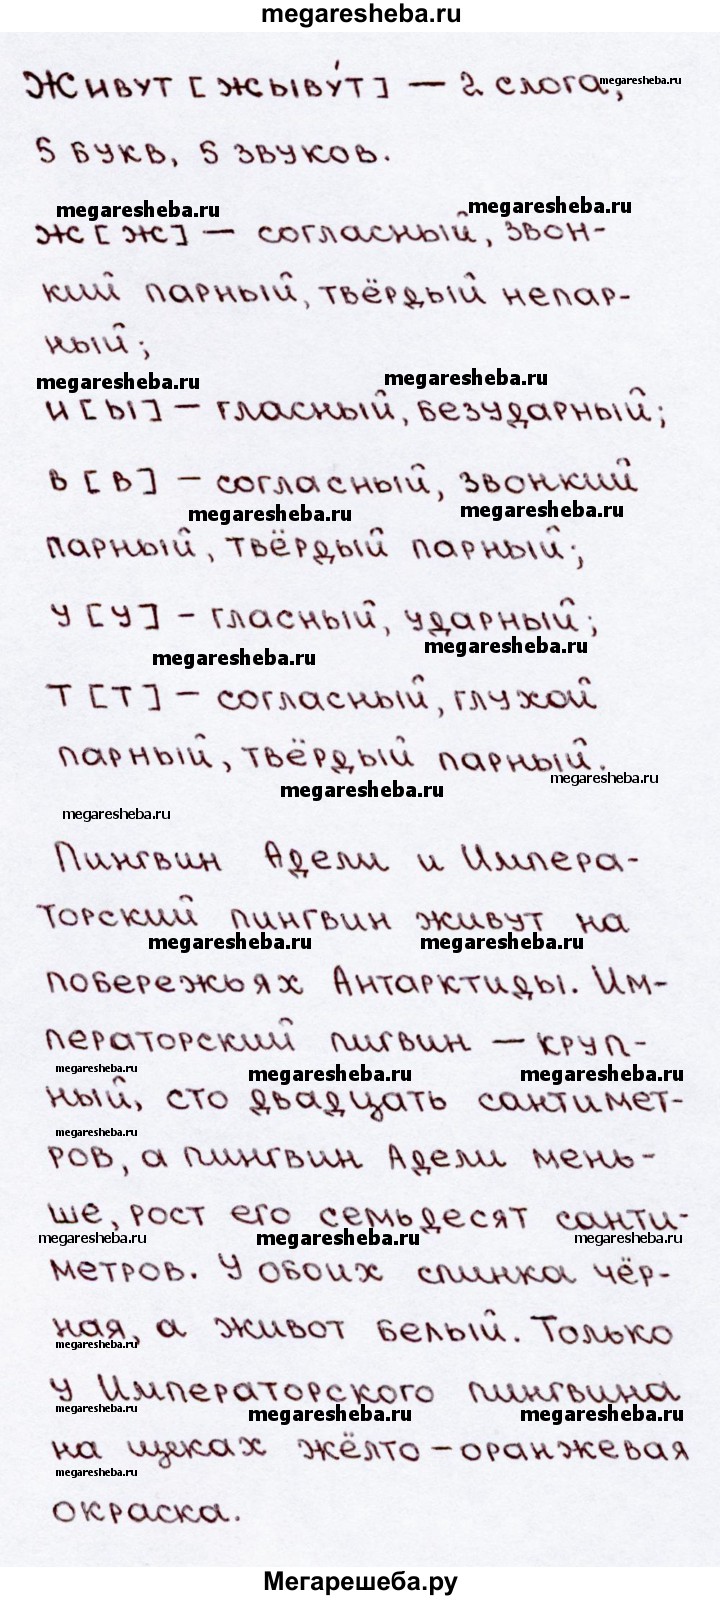 megaresheba.ru
Живут [жыву́т] — 2 слога, megaresheba.ru
5 букв, 5 звуков.
megaresheba.ru megaresheba.ru
ж [ж] — согласный, звон-
кий парный, твёрдый непар-
ный;
megaresheba.ru megaresheba.ru
и [ы] — гласный, безударный;
в [в] — согласный, звонкий
megaresheba.ru megaresheba.ru
парный, твёрдый парный;
у [у] — гласный, ударный;
megaresheba.ru megaresheba.ru
т [т] — согласный, глухой
парный, твёрдый парный.
megaresheba.ru megaresheba.ru
megaresheba.ru
Пингвин Адели и Импера-
торский пингвин живут на
megaresheba.ru megaresheba.ru
побережьях Антарктиды. Им-
ператорский пигвин — круп-
megaresheba.ru megaresheba.ru megaresheba.ru
ный, сто двадцать сантимет-
megaresheba.ru
ров, а пингвин Адели мень-
ше, рост его семьдесят санти-
megaresheba.ru megaresheba.ru megaresheba.ru
метров. У обоих спинка чёр-
ная, а живот белый. Только
megaresheba.ru
у Императорского пингвина
megaresheba.ru megaresheba.ru megaresheba.ru
на щеках жёлто-оранжевая
megaresheba.ru
окраска.
Мегарешеба.ру